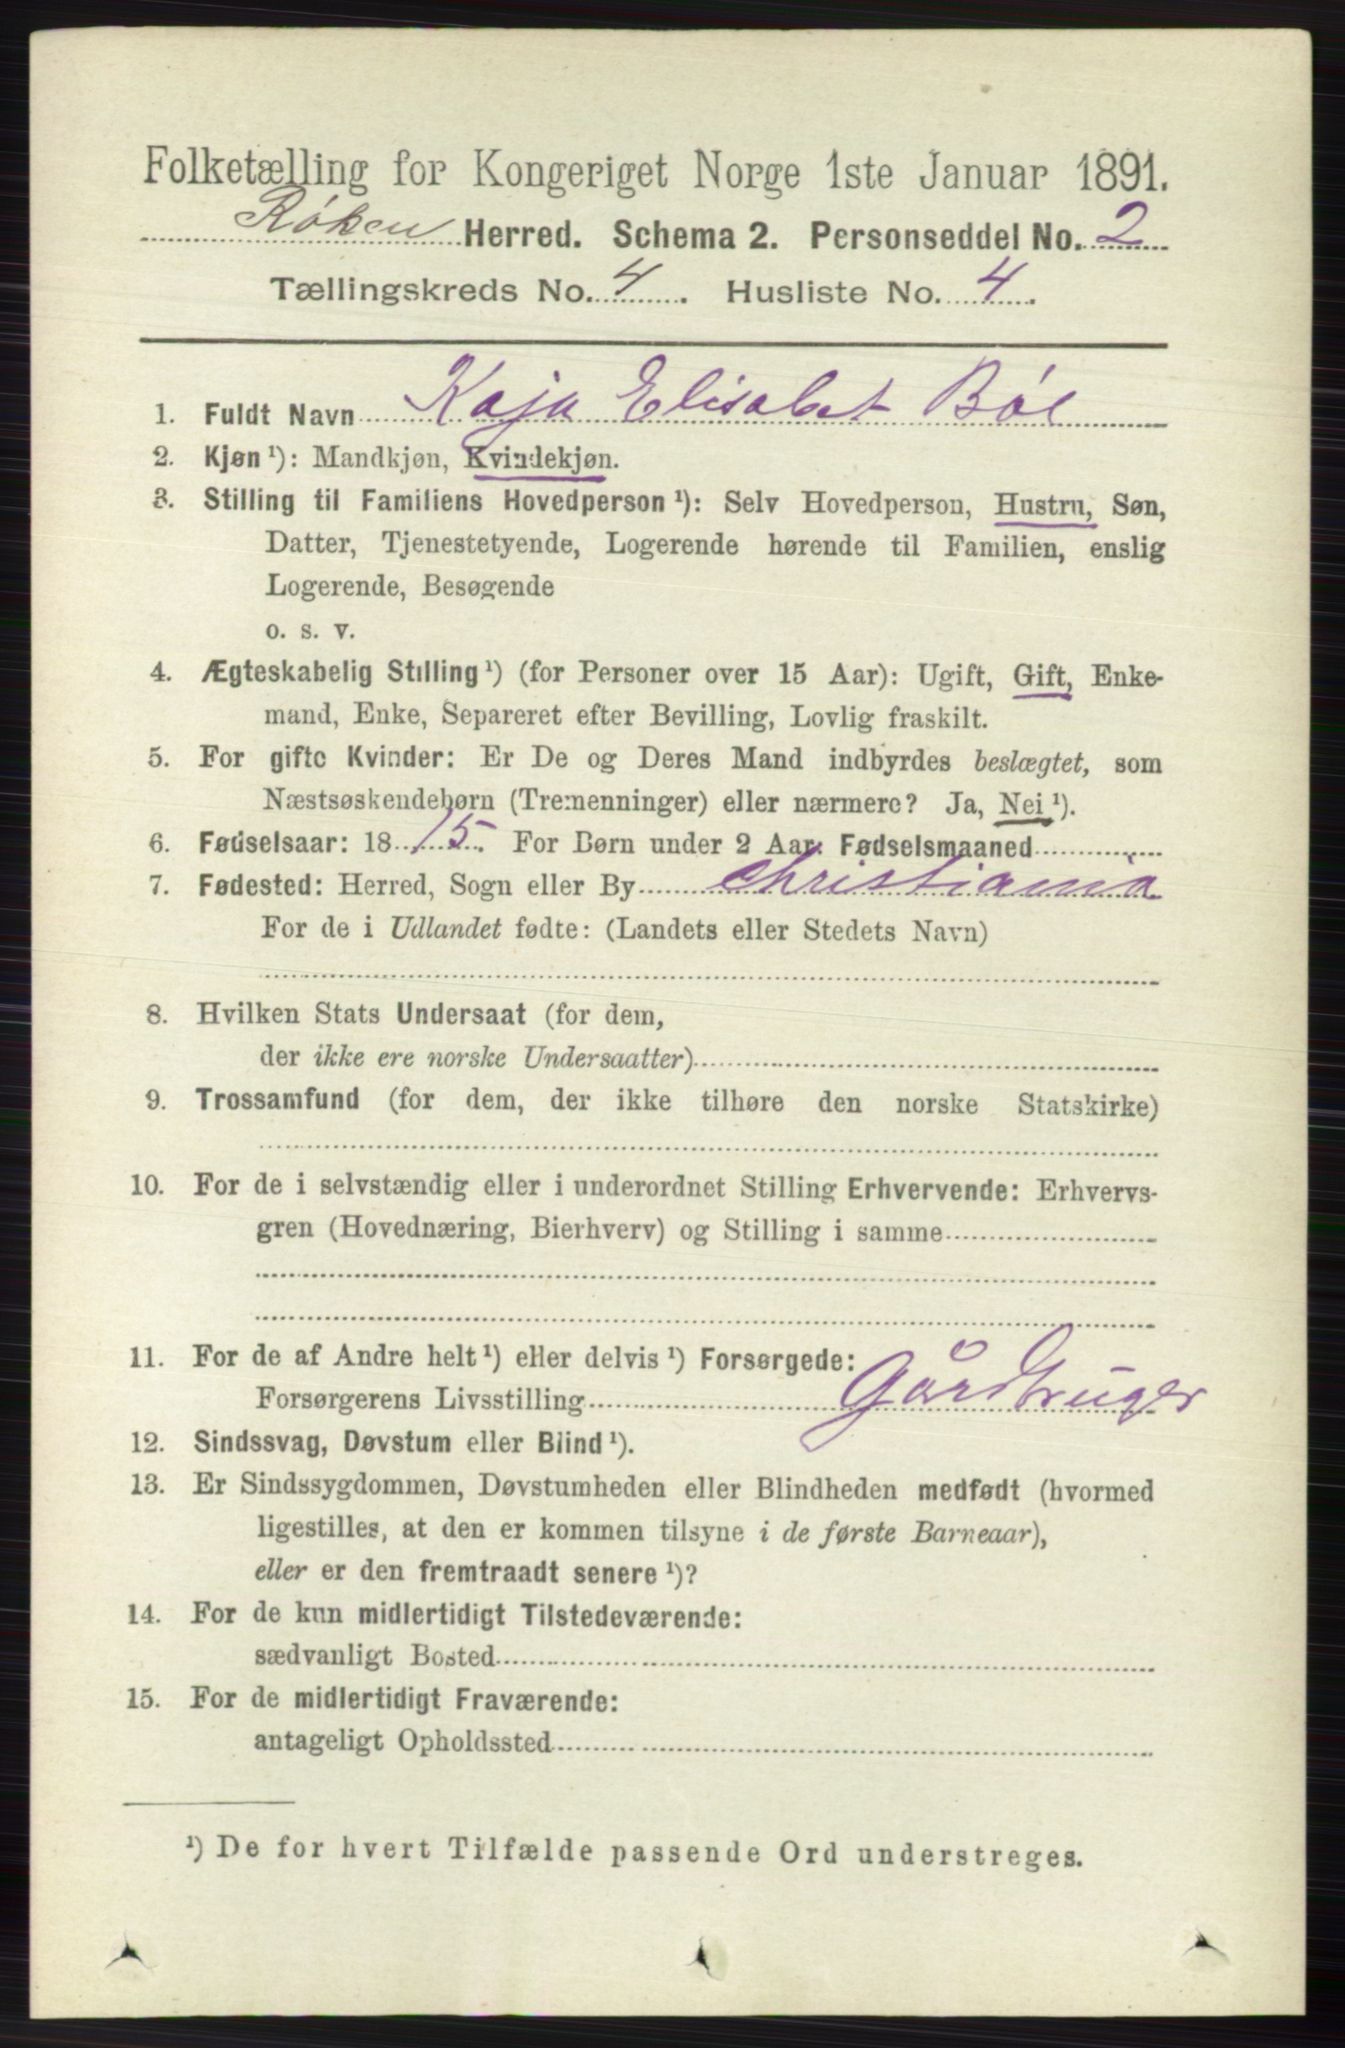 Folketælling for Kongeriget Norge 1ste Januar 1891.
Røken Herred. Schema 2. Personseddel No. 2
Tællingskreds No. 4. Husliste No. 4.
1. Fuldt Navn Kaja Elisabet Bøe
2. Kjøn ¹): Mandkjøn, Kvindekjøn.
3. Stilling til Familiens Hovedperson ¹): Selv Hovedperson, Hustru, Søn,
Datter, Tjenestetyende, Logerende hørende til Familien, enslig
Logerende, Besøgende
o. s. v.
4. Ægteskabelig Stilling ¹) (for Personer over 15 Aar): Ugift, Gift, Enke-
mand, Enke, Separeret efter Bevilling, Lovlig fraskilt.
5. For gifte Kvinder: Er De og Deres Mand indbyrdes beslægtet, som
Næstsøskendebørn (Tremenninger) eller nærmere? Ja, Nei ¹).
6. Fødselsaar: 1815. For Børn under 2 Aar: Fødselsmaaned
7. Fødested: Herred, Sogn eller By Christiania
For de i Udlandet fødte: (Landets eller Stedets Navn)
8. Hvilken Stats Undersaat (for dem,
der ikke ere norske Undersaatter)
9. Trossamfund (for dem, der ikke tilhøre den norske Statskirke)
10. For de i selvstændig eller i underordnet Stilling Erhvervende: Erhvervs-
gren (Hovednæring, Bierhverv) og Stilling i samme
11. For de af Andre helt ¹) eller delvis ¹) Forsørgede:
Forsørgerens Livsstilling Gårdbruger
12. Sindssvag, Døvstum eller Blind ¹).
13. Er Sindssygdommen, Døvstumheden eller Blindheden medfødt (hvormed
ligestilles, at den er kommen tilsyne i de første Barneaar),
eller er den fremtraadt senere ¹)?
14. For de kun midlertidigt Tilstedeværende:
sædvanligt Bosted
15. For de midlertidigt Fraværende:
antageligt Opholdssted
¹) De for hvert Tilfælde passende Ord understreges.